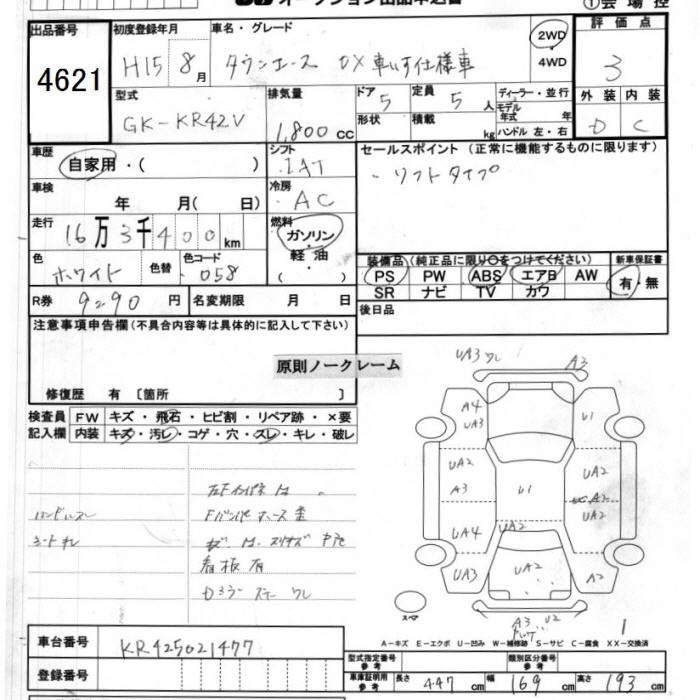 オークション出品申込書
① 会 場 控
出品番号
4621
初度登録年月
H15 8月
車名・グレード
タウンエース DX 車いす仕様車
2WD
4WD
評 価 点
3
型式
GK-KR42V
排気量
1,800 cc
ドア
5
定員
5 人
形状
積載
kg
ディーラー・並行
モデル年式 年
ハンドル 左・右
外 装
内 装
D
C
車歴
自家用・( )
シフト
IAT
セールスポイント (正常に機能するものに限ります)
・リフトタイプ
車検
年 月( 日)
冷房
AC
走行
16万3千400 km
燃料
ガソリン
・
軽 油
( )
色
ホワイト
色替
色コード
058
装備品(純正品に限り○をつけてください)
PS PW ABS エアB AW
SR ナビ TV カワ
新車保証書
有・無
R券
9290 円
名変期限 月 日
後日品
注意事項申告欄(不具合内容等は具体的に記入して下さい)
原則ノークレーム
修復歴 有 〔箇所 〕
検査員
記入欄
FW キズ・飛石・ヒビ割・リペア跡・×要
内装 キズ・汚レ・コゲ・穴・スレ・キレ・破レ
ハンドルスレ
シートキレ
看板有
UA3 ワレ
A3
A4
UA3
U1
UA2
A3
U1
UA2
A2
UA2
UA4
UA2
UA3
UA2
A2
A3 U2
スペア
1
A-キズ E-エクボ U-凹み W-補修跡 S-サビ C-腐食 XX-交換済
車台番号
KR425021477
登録番号
型式指定番号
参考
類別区分番号
参考
車庫証明用
参考
長さ 447 cm
幅 169 cm
高さ 193 cm